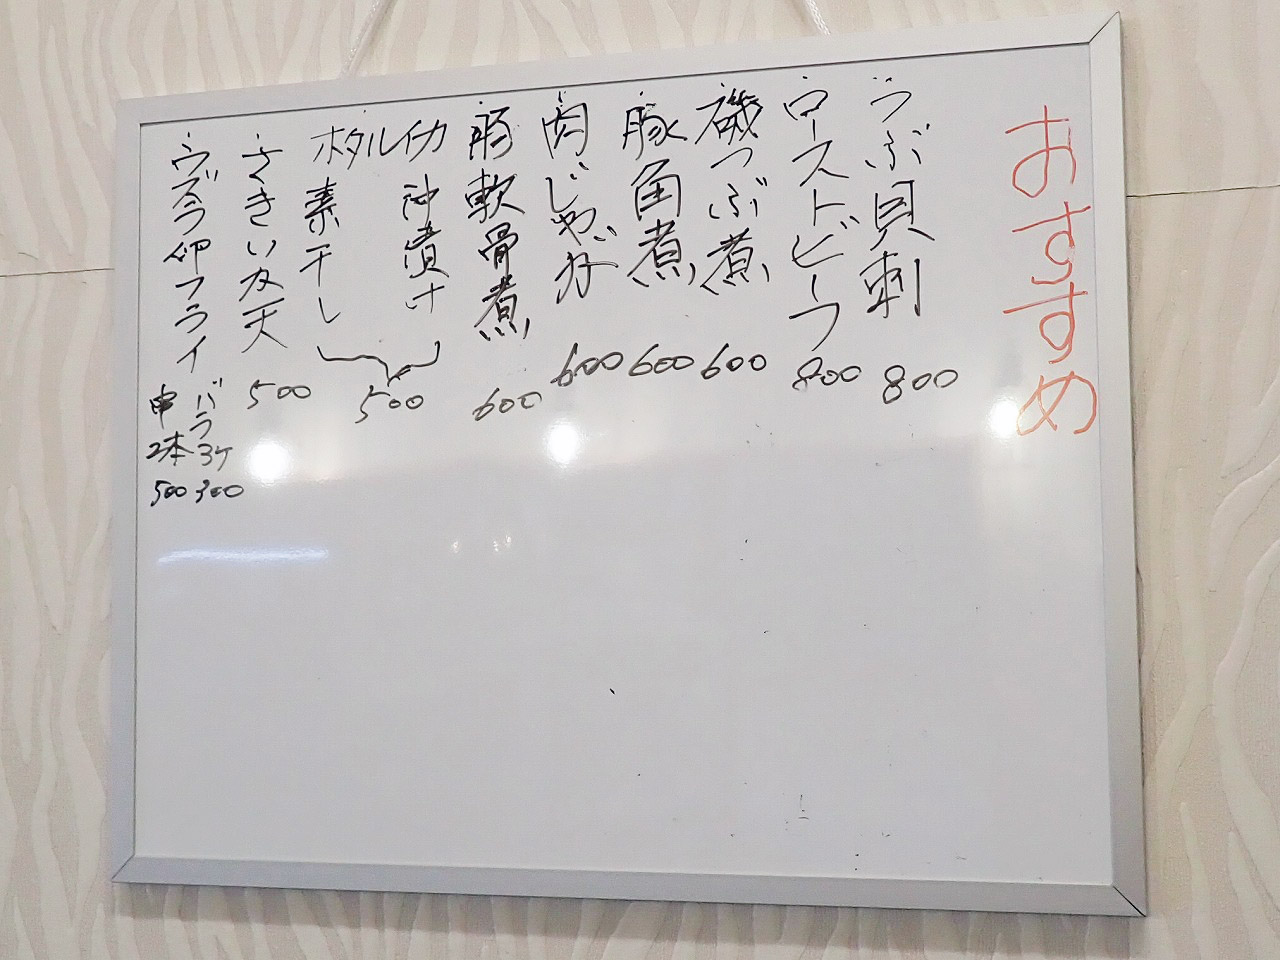 おすすめ
つぶ貝刺 800
ローストビーフ 800
磯つぶ煮 600
豚角煮 600
肉じゃが 600
豚軟骨煮 600
ホタルイカ
沖漬け
素干し
500
さきいか天 500
ウズラ卵フライ
バラ3ケ 300
串2本 500